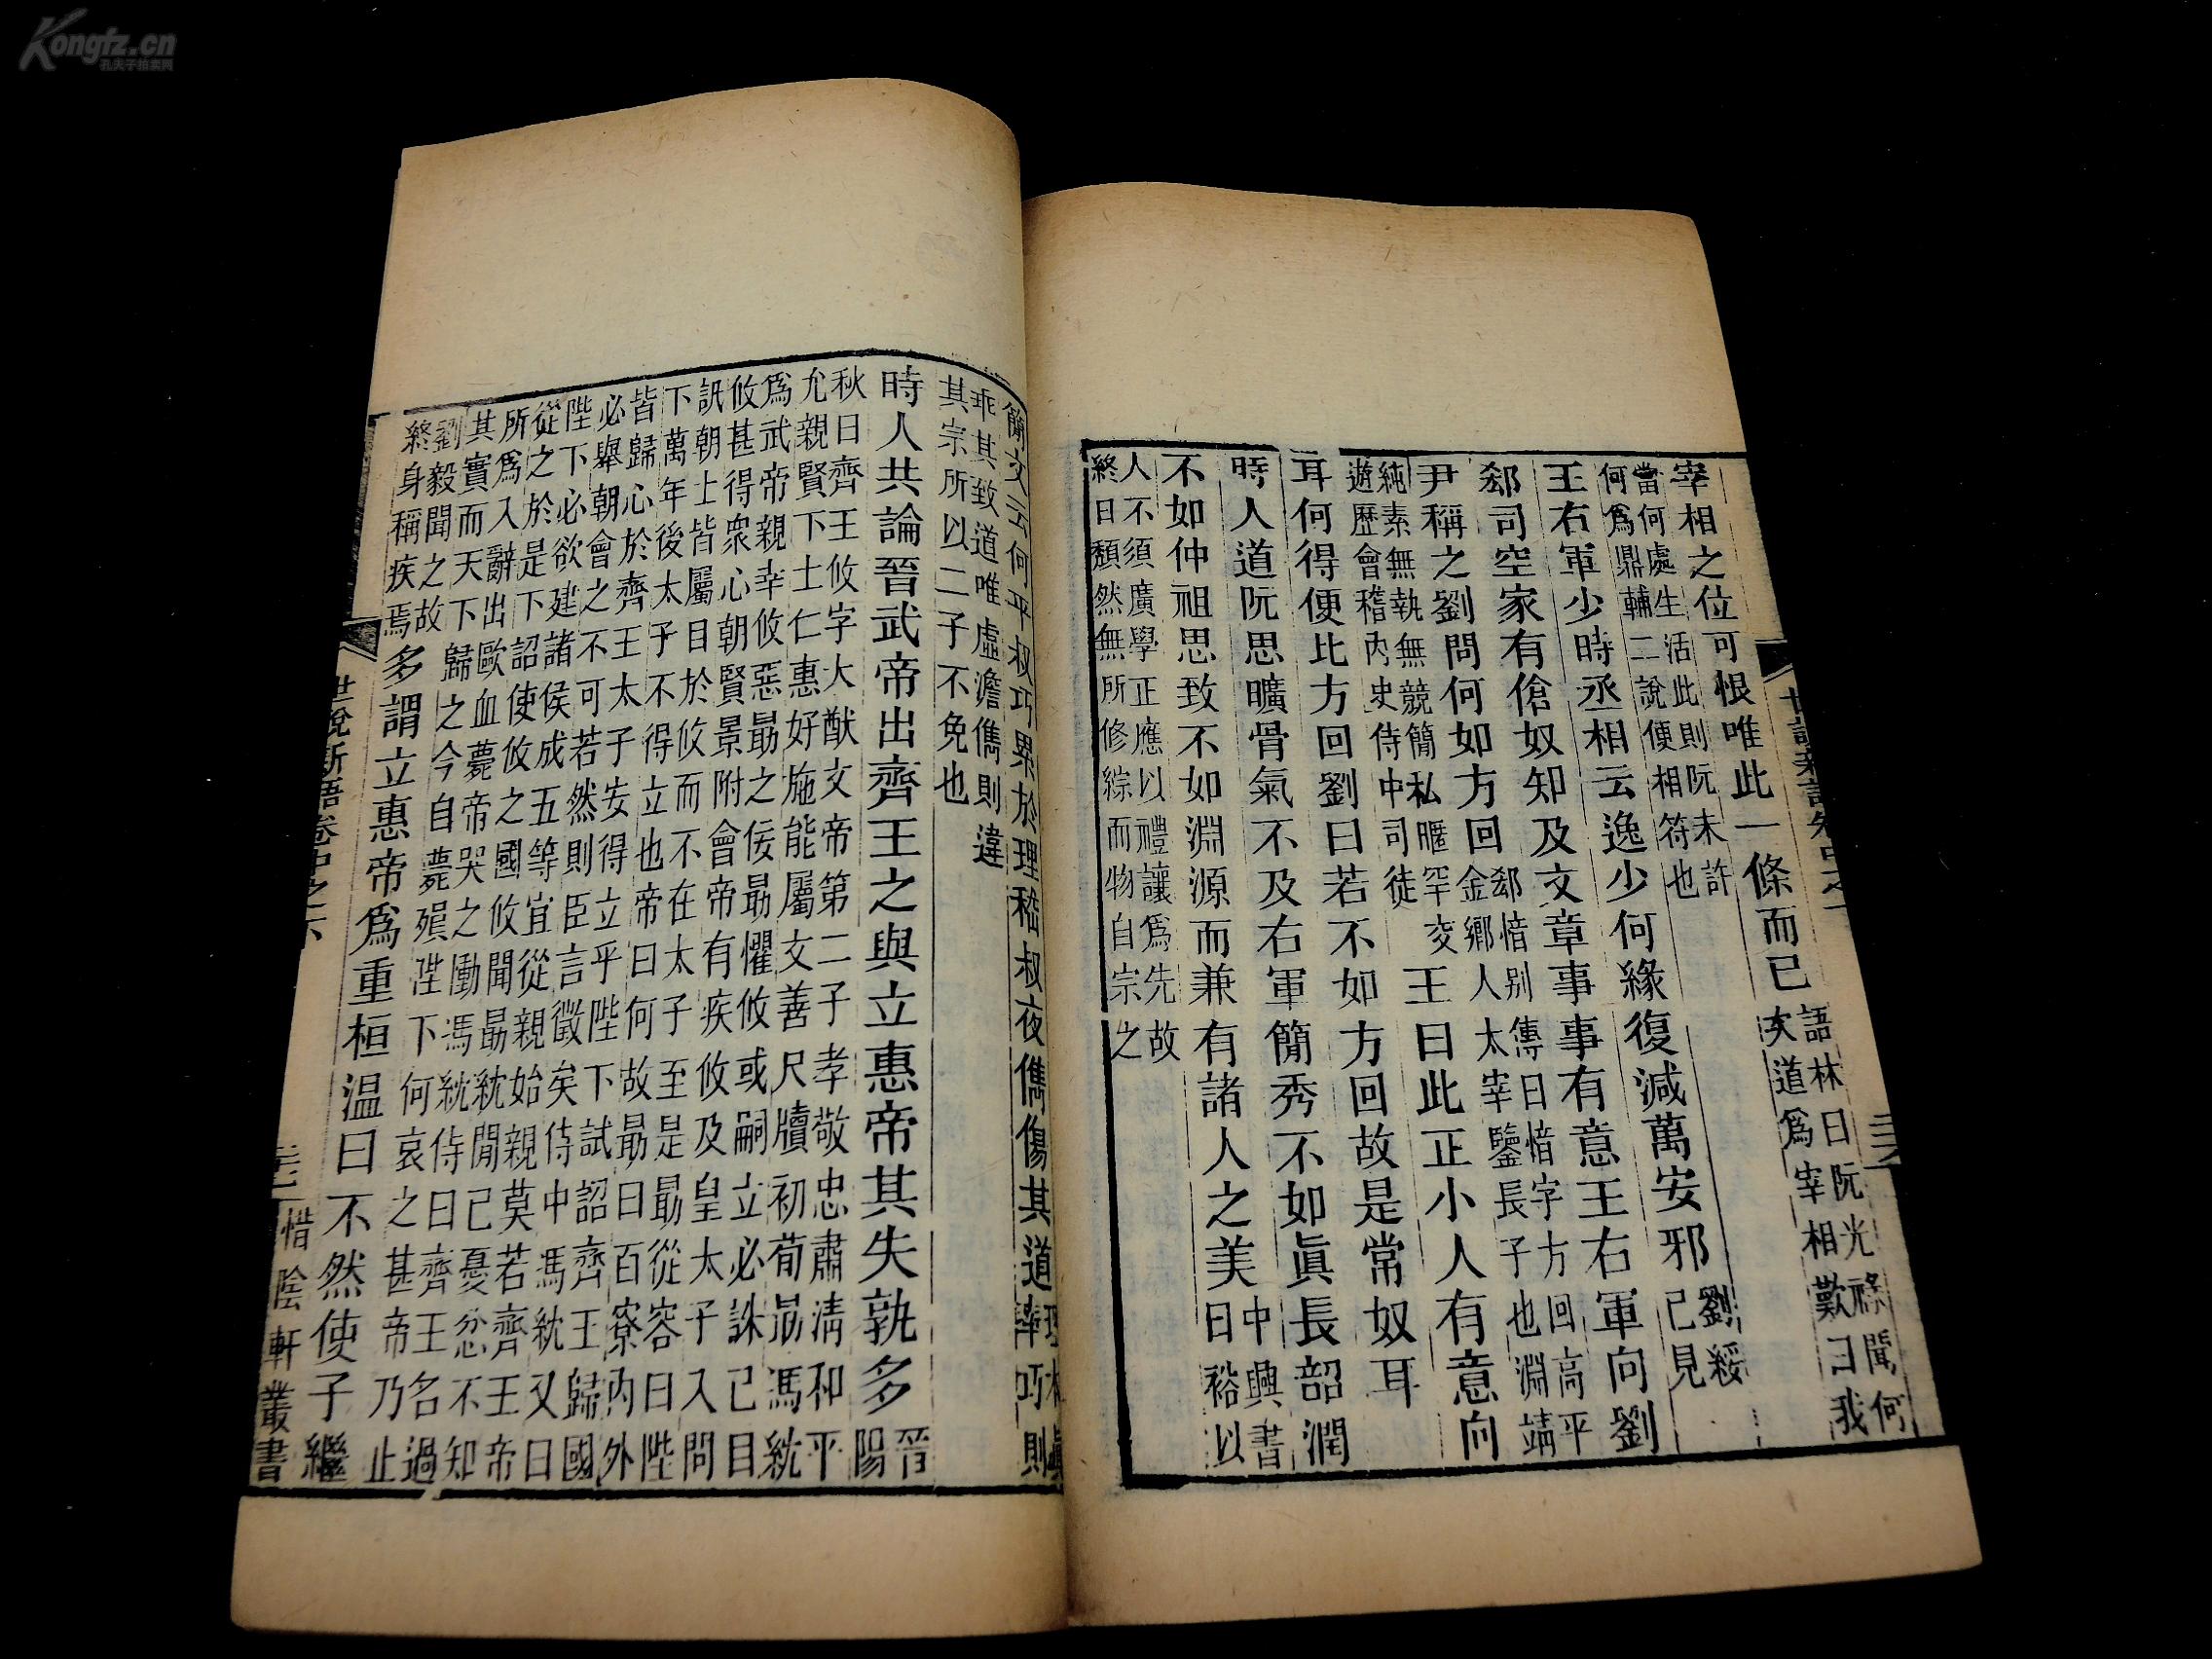 宰相之位可恨唯此一條而已語林曰阮光祿聞何
次道爲宰相歎曰我
當何處生活此則阮未許
何爲鼎輔二說便相符也
王右軍少時丞相云逸少何緣復減萬安邪劉綏
已見
郄司空家有傖奴知及文章事事有意王右軍向劉
尹稱之劉問何如方回郄愔别傳曰愔字方回高平
金鄉人太宰鑒長子也淵靖
純素無執無競簡私暱罕交
遊歷會稽内史侍中司徒王曰此正小人有意向
耳何得便比方回劉曰若不如方回故是常奴耳
時人道阮思曠骨氣不及右軍簡秀不如眞長韶潤
不如仲祖思致不如淵源而兼有諸人之美中興書
曰裕以
人不須廣學正應以禮讓爲先故
終日頹然無所修綜而物自宗之
簡文云何平叔巧累於理嵇叔夜儁傷其道理本眞
率巧則
乖其致道唯虛澹儁則違
其宗所以二子不免也
時人共論晉武帝出齊王之與立惠帝其失孰多晉
陽
秋曰齊王攸字大猷文帝第二子孝敬忠肅清和平
允親賢下士仁惠好施能屬文善尺牘初荀勗馮紞
爲武帝親幸攸惡勗之佞勗懼攸或嗣立必誅己且
攸甚得衆心朝賢景附會帝有疾攸及皇太子入問
訊朝士皆屬目於攸而不在太子至是勗從容曰陛
下萬年後太子不得立也帝曰何故勗曰百寮内外
皆歸心於齊王太子安得立乎陛下試詔齊王歸國
必舉朝會之不可若然則臣言徵矣侍中馮紞又曰
陛下必欲建諸侯成五等宜從親始親莫若齊王帝
從之於是下詔使攸之國攸聞勗紞閒己憂忿不知
所爲入辭出歐血薨帝哭之慟馮紞侍曰齊王名過
其實而天下歸之今自薨殞陛下何哀之甚帝乃止
劉毅聞之故
終身稱疾焉多謂立惠帝爲重桓温曰不然使子繼
世說新語卷中之下
惜陰軒叢書
Kongfz.cn
孔夫子拍卖网